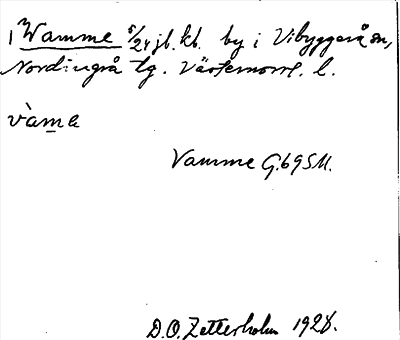 Wamme 5/24 jb. kb. by i Vibyggerå sn,
Nordingrå tg. Västernorrl. l.
vàma
Vamme G.69SM.
D.O. Zetterholm 1928.